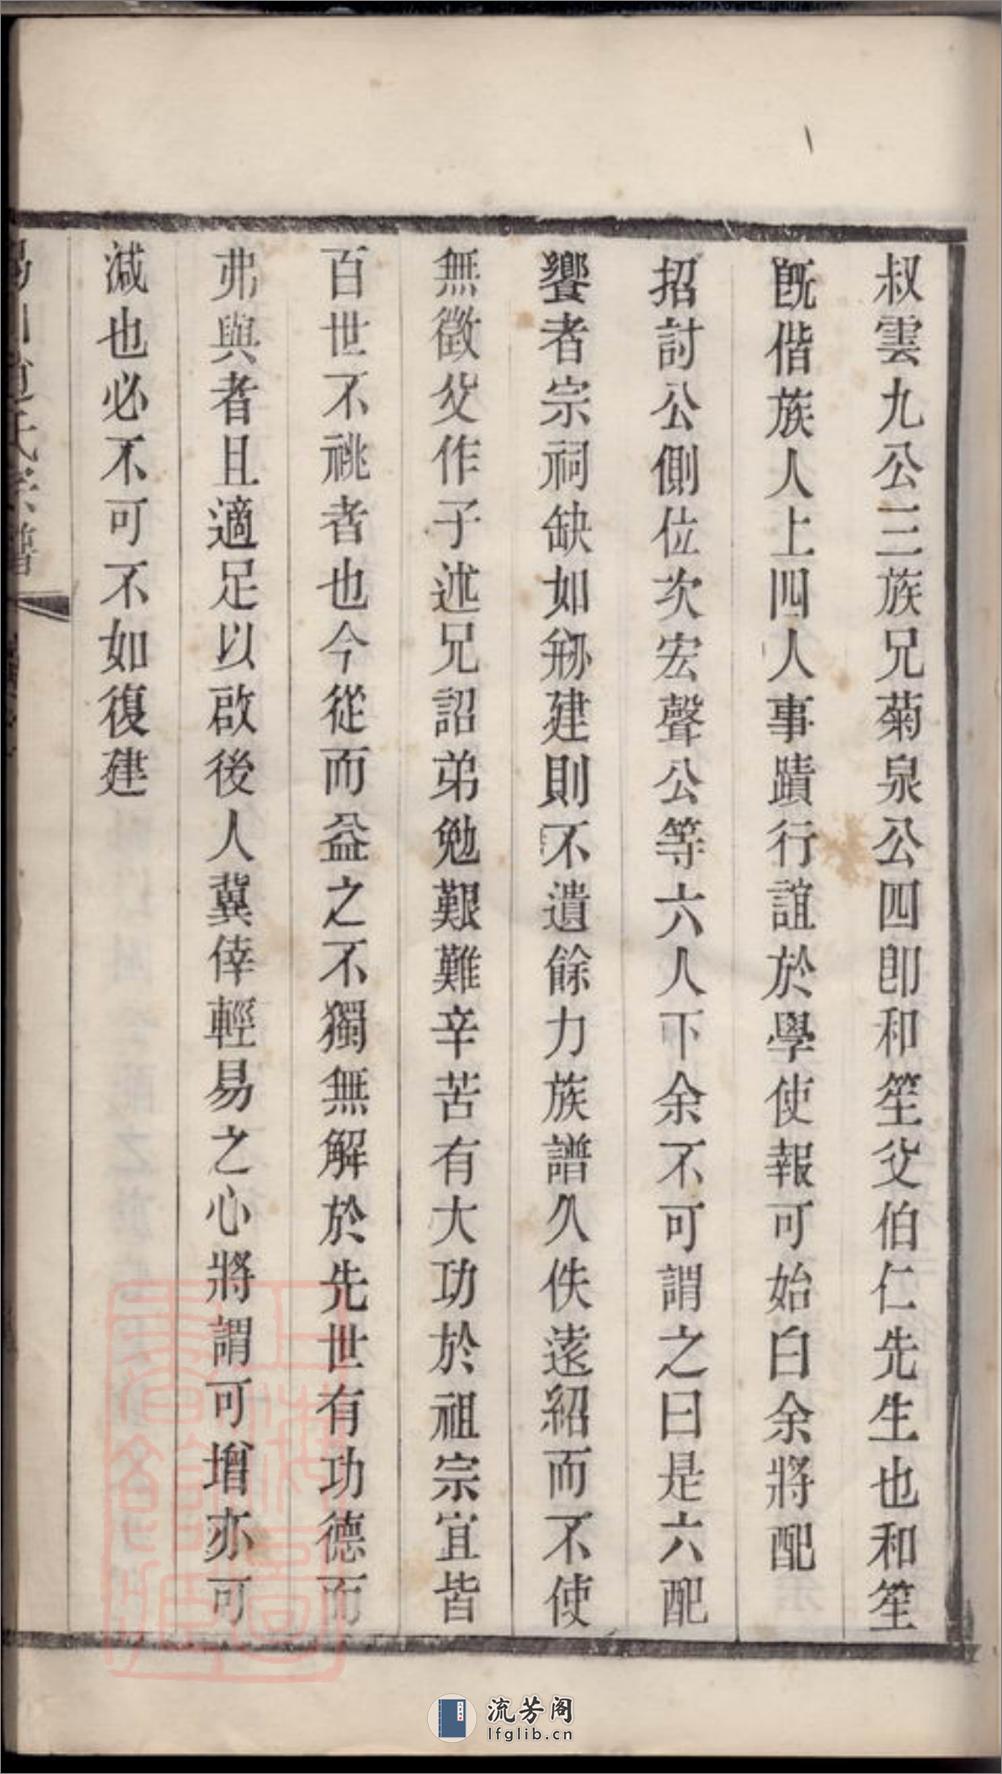 叔雲九公三族兄菊泉公四卽和笙父伯仁先生也和笙
旣偕族人上四人事蹟行誼於學使報可始白余將配
招討公側位次宏聲公等六人下余不可謂之曰是六配
饗者宗祠缺如剏建則不遺餘力族譜久佚遠紹而不使
無徵父作子述兄詔弟勉艱難辛苦有大功於祖宗宜皆
百世不祧者也今從而益之不獨無解於先世有功德而
弗與者且適足以啟後人冀倖輕易之心將謂可增亦可
減也必不可不如復建
氏宗譜
流芳阁
lfglib.cn